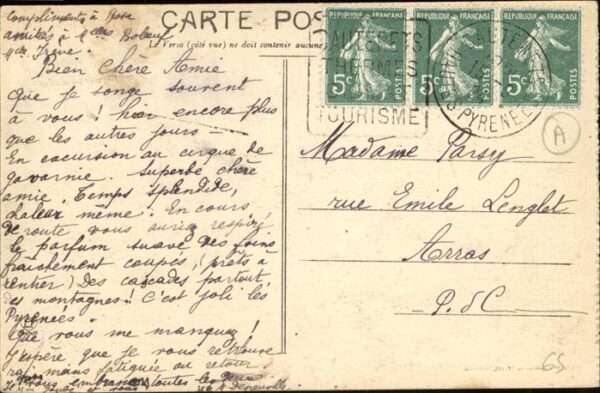 Compliments à Rose
amitiés à Mdes Boboeuf
Mde
CARTE POS
Le Verso (côté vue) ne doit contenir aucune
Bien chère Amie
Que je songe souvent
à vous ! hier encore plus
que les autres jours —
En excursion au cirque de
Gavarnie. Superbe chère
amie. Temps splendide,
chaleur même. En cours
de route vous auriez respiré
le parfum suave des foins
fraîchement coupés, (prêts à
rentrer) Des cascades partout,
des montagnes ! C'est joli les
Pyrénées.
Que vous me manquez !
J'espère que je vous retrouverai
mans fatiguée au retour.
vous toutes les
REPUBLIQUE FRANÇAISE
5c POSTES
REPUBLIQUE FRANÇAISE
5c POSTES
REPUBLIQUE FRANÇAISE
5c POSTES
CAUTERETS
THERMES
TOURISME
PYRENEES
A
Madame Parsy
rue Emile Lenglet
Arras
P. d C
65